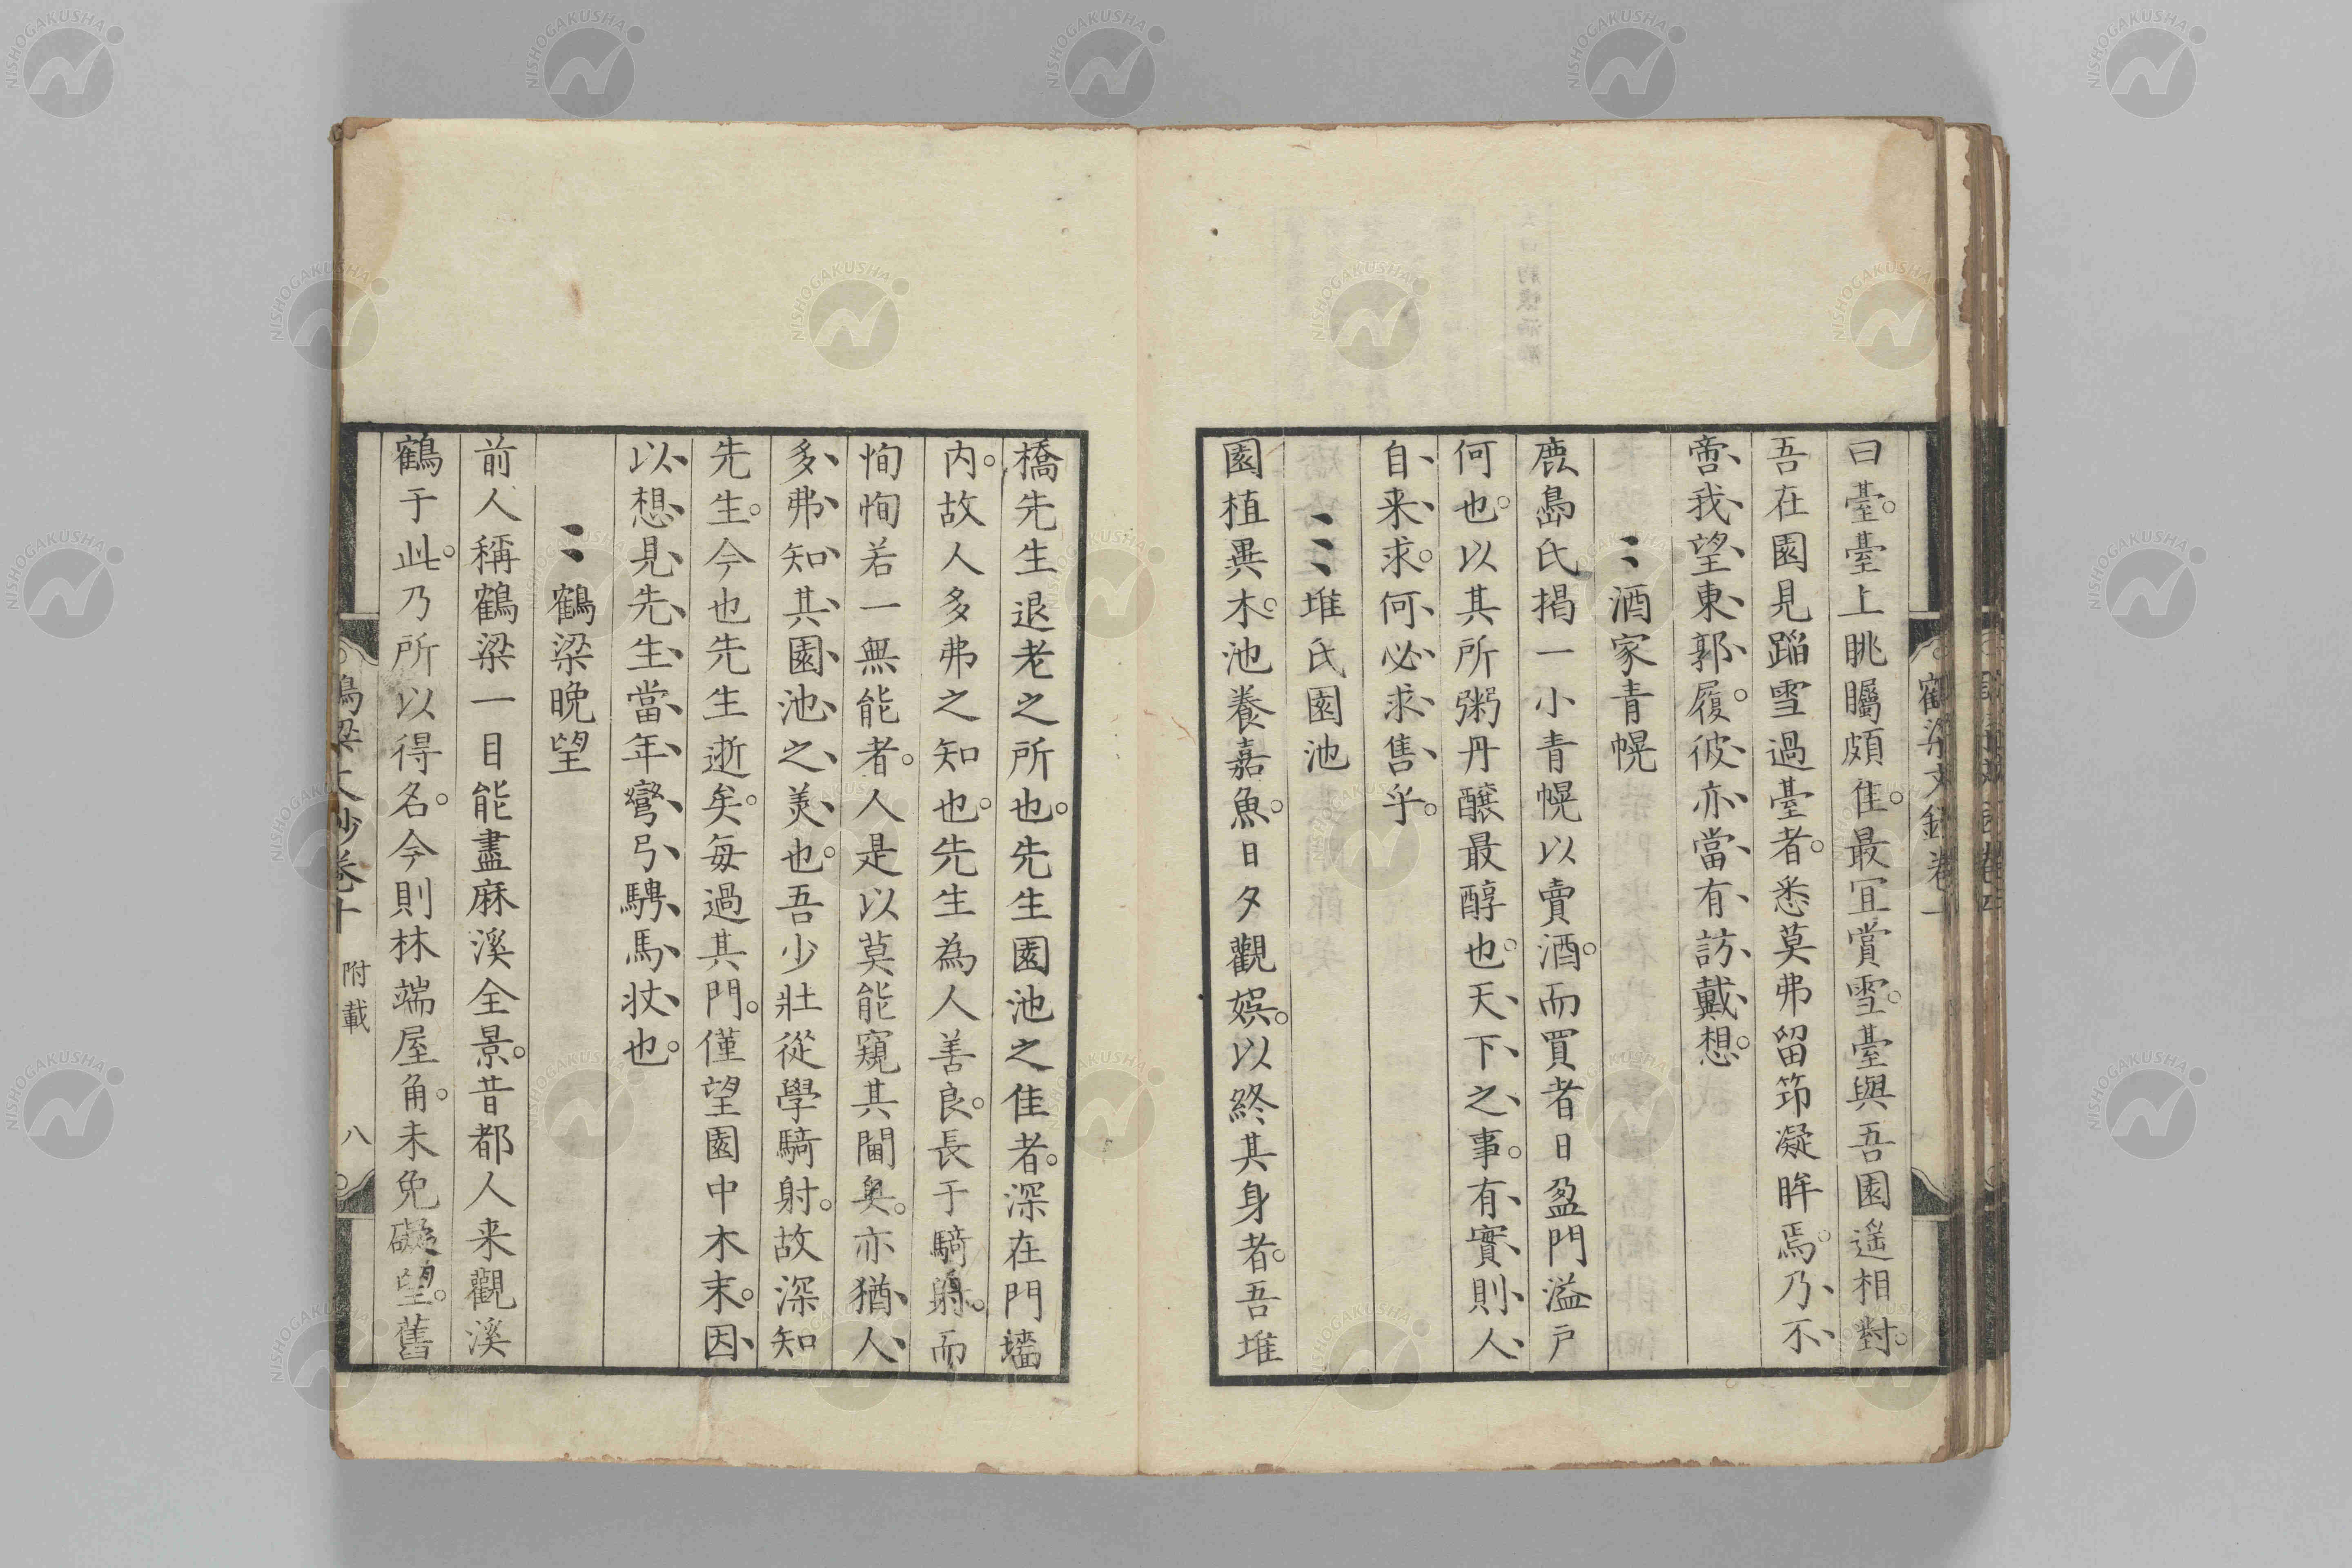 曰臺。臺上眺矚頗佳。最宜賞雪。臺與吾園遥相對。
吾在園見蹈雪過臺者。悉莫弗留笻凝眸焉。乃不
啻我望東郭履。彼亦當有訪戴想。
酒家青幌
鹿島氏揭一小青幌以賣酒。而買者日盈門溢戶
何也。以其所粥丹釀最醇也。天下之事。有實則人
自来求。何必求售乎。
堆氏園池
園植異木。池養嘉魚。日夕觀娯。以終其身者。吾堆
橋先生退老之所也。先生園池之佳者。深在門墻
内。故人多弗之知也。先生為人善良。長于騎射。而
恂恂若一無能者。人是以莫能窺其閫奥。亦猶人
多弗知其園池之美也。吾少壯從學騎射。故深知
先生。今也先生逝矣。每過其門。僅望園中木末。因
以想見先生當年彎弓騁馬狀也。
鶴梁晚望
前人稱鶴梁一目能盡麻溪全景。昔都人来觀溪
鶴于此。乃所以得名。今則林端屋角。未免礙望。舊
鶴梁文鈔卷十 附載 八
NISHOGAKUSHA